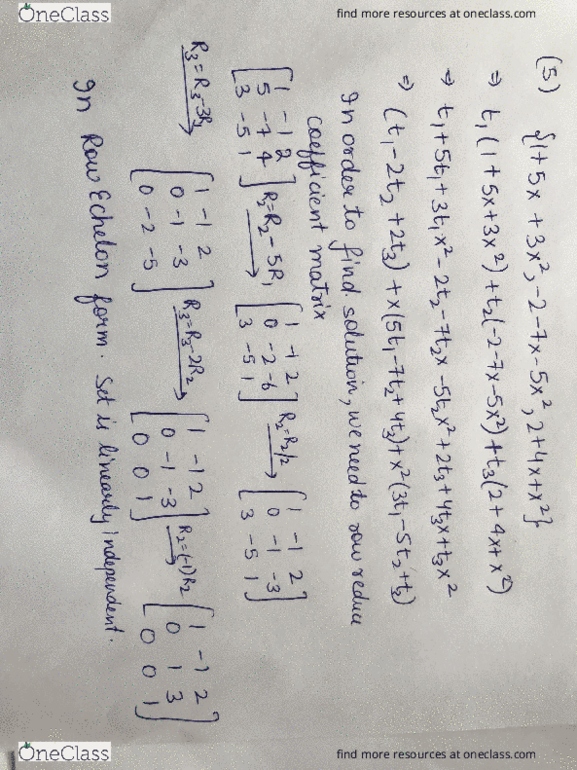 OneClass
find more resources at oneclass.com
(5) {1+5x+3x², -2-7x-5x², 2+4x+x²}
⇒ t₁(1+5x+3x²)+t₂(-2-7x-5x²)+t₃(2+4x+x²)
⇒ t₁+5t₁+3t₁x²-2t₂-7t₂x-5t₂x²+2t₃+4t₃x+t₃x²
⇒ (t₁-2t₂+2t₃)+x(5t₁-7t₂+4t₃)+x²(3t₁-5t₂+t₃)
In order to find solution, we need to row reduce
coefficient matrix
[1 -1 2; 5 -7 4; 3 -5 1] R₂=R₂-5R₁ → [1 -1 2; 0 -2 -6; 3 -5 1] R₂=R₂/2 → [1 -1 2; 0 -1 -3; 3 -5 1]
R₃=R₃-3R₁ → [1 -1 2; 0 -1 -3; 0 -2 -5] R₃=R₃-2R₂ → [1 -1 2; 0 -1 -3; 0 0 1] R₂=(-1)R₂ → [1 -1 2; 0 1 3; 0 0 1]
In Row Echelon form. Set is linearly independent.
OneClass
find more resources at oneclass.com